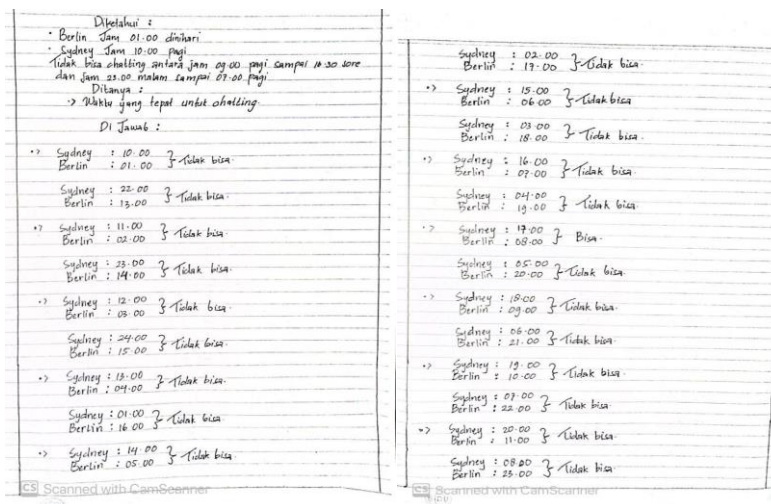 Diketahui :
· Berlin Jam 01.00 dinihari
· Sydney Jam 10.00 pagi
Tidak bisa chatting antara jam 09.00 pagi sampai 16.30 sore
dan jam 23.00 malam sampai 07.00 pagi
Ditanya :
·> Waktu yang tepat untuk chatting
Di Jawab :
·> Sydney : 10.00
Berlin : 01.00 } Tidak bisa.
Sydney : 22.00
Berlin : 13.00 } Tidak bisa.
·> Sydney : 11.00
Berlin : 02.00 } Tidak bisa.
Sydney : 23.00
Berlin : 14.00 } Tidak bisa.
·> Sydney : 12.00
Berlin : 03.00 } Tidak bisa
Sydney : 24.00
Berlin : 15.00 } Tidak bisa.
·> Sydney : 13.00
Berlin : 04.00 } Tidak bisa.
Sydney : 01.00
Berlin : 16.00 } Tidak bisa
·> Sydney : 14.00
Berlin : 05.00 } Tidak bisa.
CS Scanned with CamScanner
Sydney : 02.00
Berlin : 17.00 } Tidak bisa.
·> Sydney : 15.00
Berlin : 06.00 } Tidak bisa
Sydney : 03.00
Berlin : 18.00 } Tidak bisa.
·> Sydney : 16.00
Berlin : 07.00 } Tidak bisa.
Sydney : 04.00
Berlin : 19.00 } Tidak bisa.
·> Sydney : 17.00
Berlin : 08.00 } Bisa.
Sydney : 05.00
Berlin : 20.00 } Tidak bisa.
·> Sydney : 18.00
Berlin : 09.00 } Tidak bisa.
Sydney : 06.00
Berlin : 21.00 } Tidak bisa.
·> Sydney : 19.00
Berlin : 10.00 } Tidak bisa.
Sydney : 07.00
Berlin : 22.00 } Tidak bisa.
·> Sydney : 20.00
Berlin : 11.00 } Tidak bisa.
Sydney : 08.00
Berlin : 23.00 } Tidak bisa.
CS Scanned with CamScanner